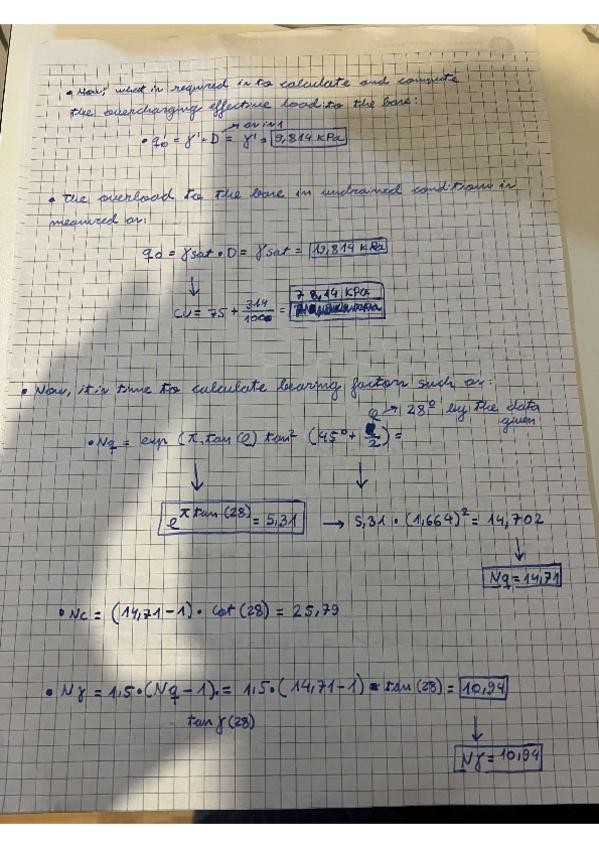 • Now, what is required is to calculate and compute
the overcharging effective load to the base:
• q'o = γ' · D = γ' = 9,814 kPa
→ as is 1
• the overload to the base in undrained conditions is
measured as:
qo = γsat · D = γsat = 19,814 kPa
↓
cu = 75 + 314/100 = 78,14 kPa
• Now, it is time to calculate bearing factors such as:
φ → 28° by the data
given
• Nq = exp (π · tan φ) tan² (45° + φ/2) =
↓ ↓
e^π tan(28) = 5,31 → 5,31 · (1,664)² = 14,702
↓
Nq = 14,71
• Nc = (14,71 - 1) · cot (28) = 25,79
• Nγ = 1,5 · (Nq - 1) · = 1,5 · (14,71 - 1) · tan (28) = 10,94
tan γ (28)
↓
Nγ = 10,94